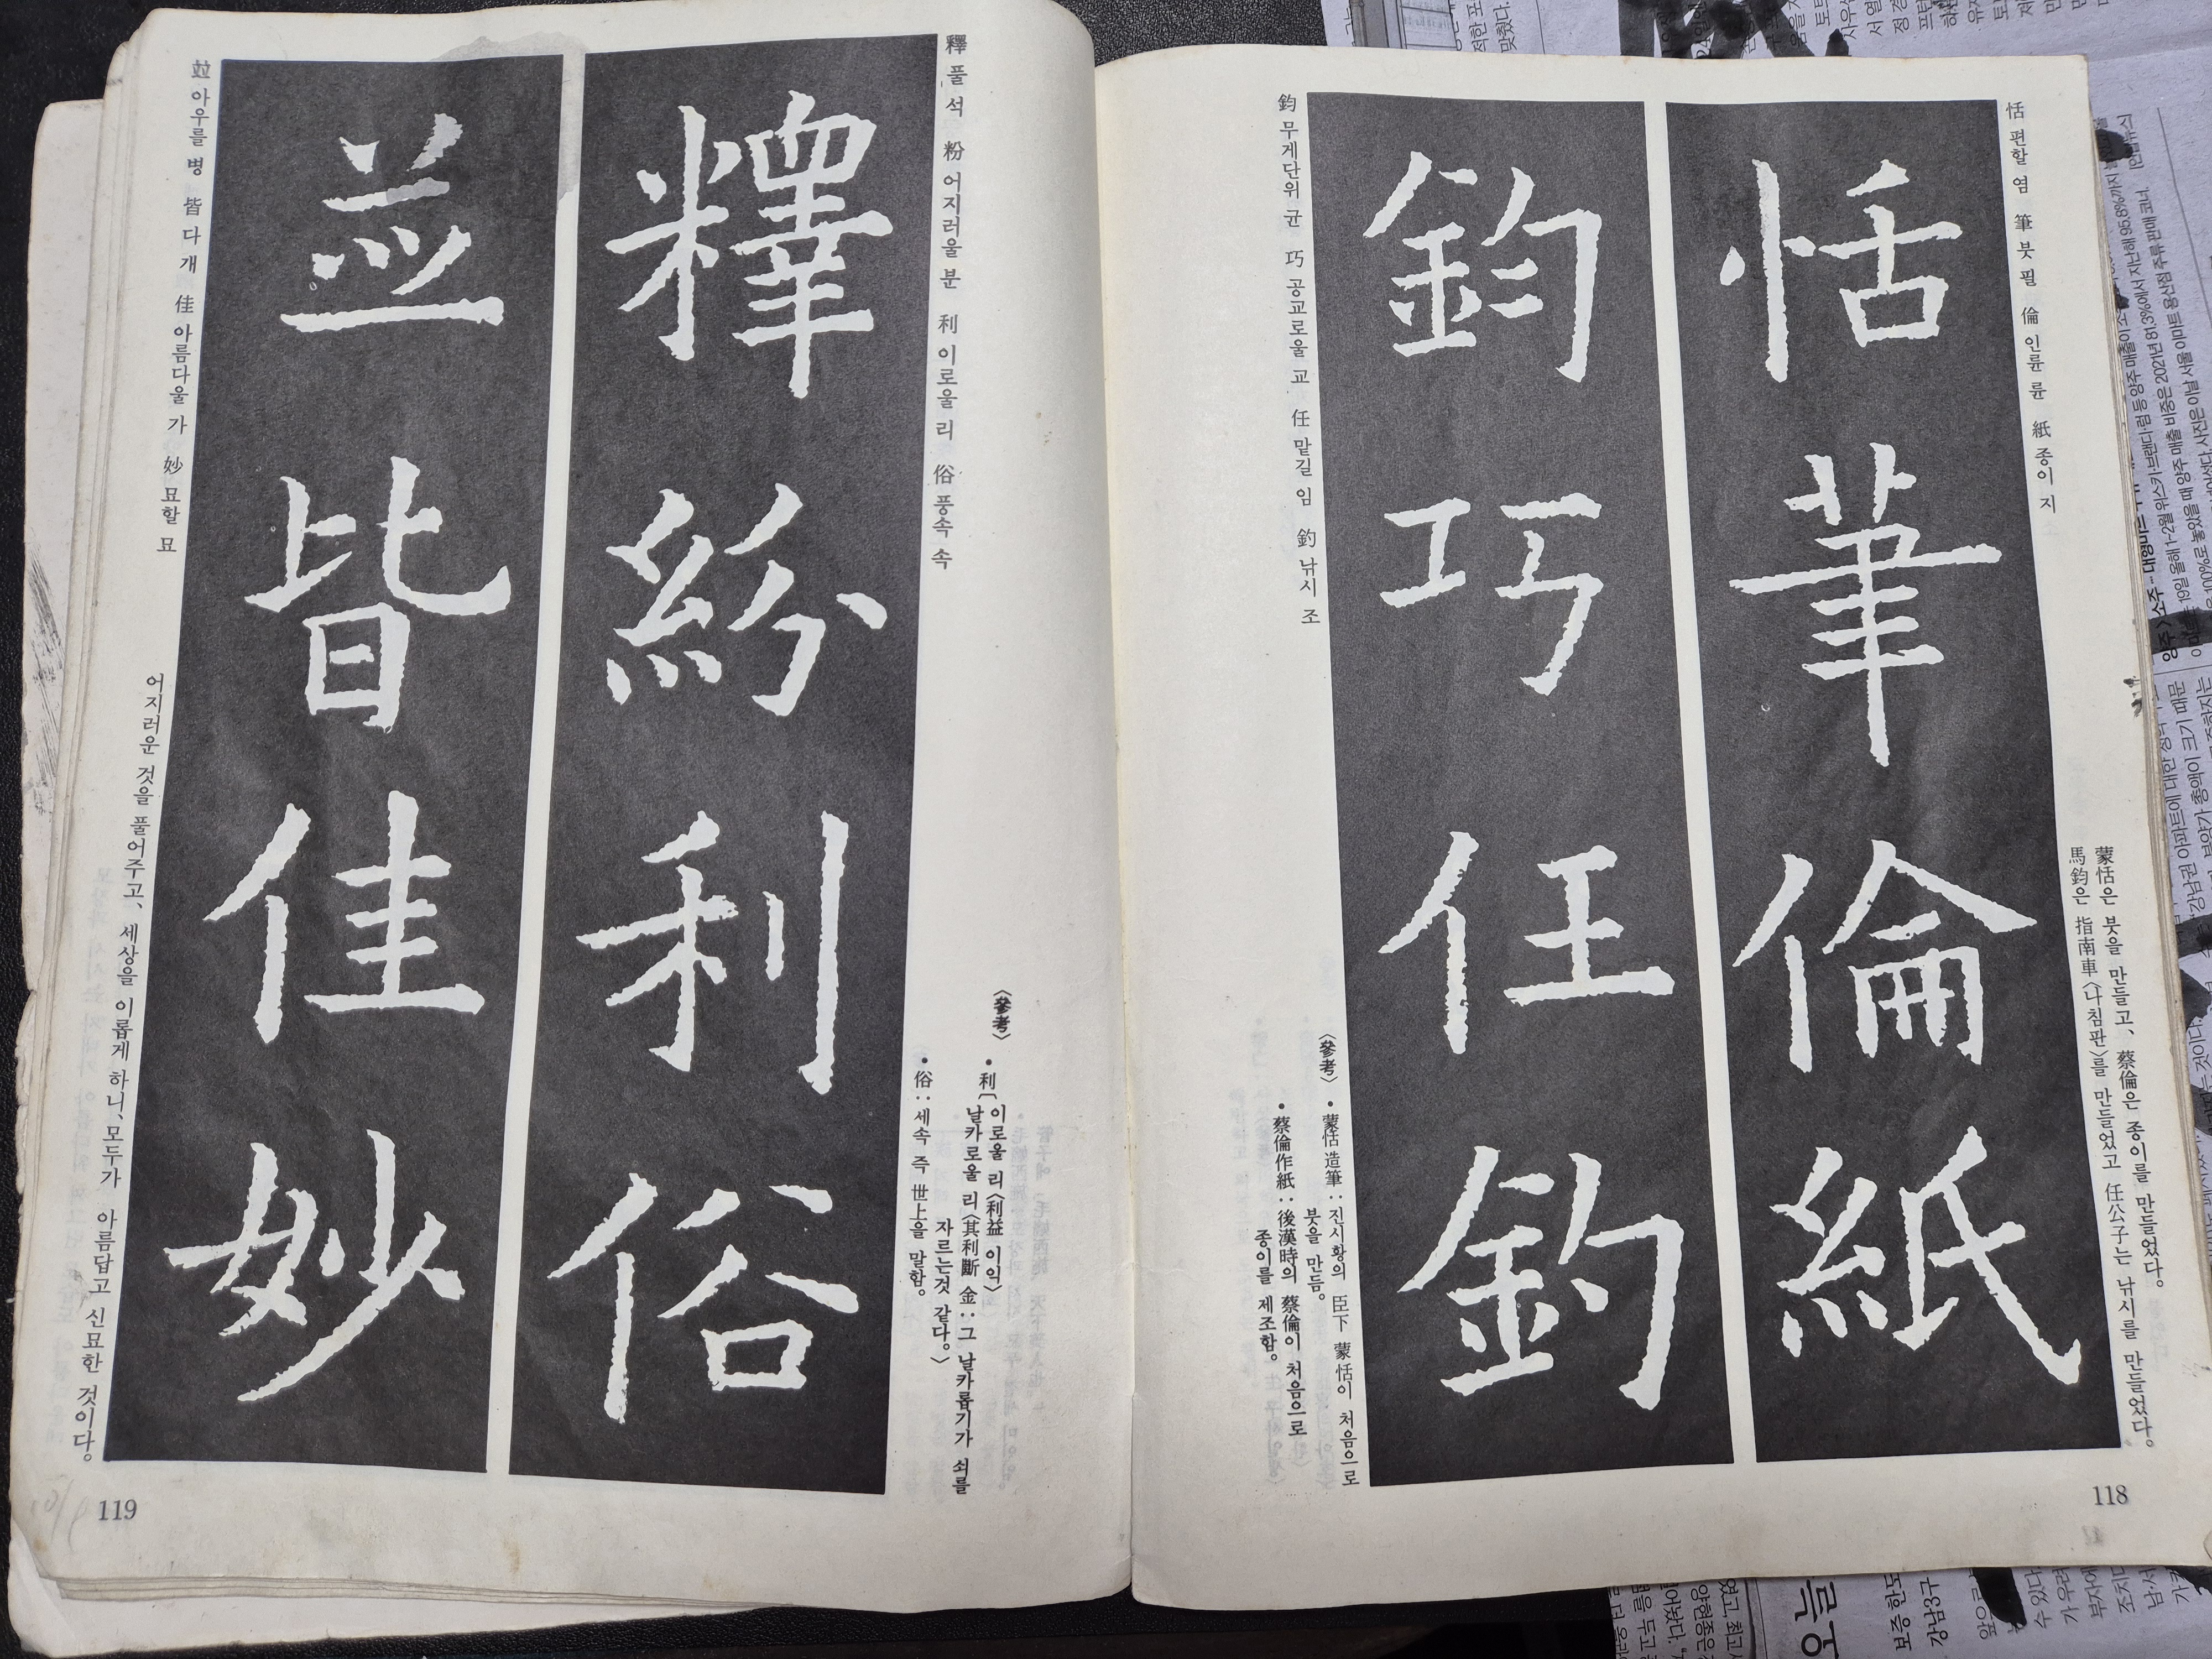 恬 편할 염 筆 붓 필 倫 인륜 륜 紙 종이 지
恬筆倫紙
蒙恬은 붓을 만들고、 蔡倫은 종이를 만들었다。
馬鈞은 指南車〈나침판〉를 만들었고 任公子는 낚시를 만들었다。
鈞 무게단위 균 巧 공교로울 교 任 맡길 임 釣 낚시 조
鈞巧任釣
〈參考〉
• 蒙恬造筆: 진시황의 臣下 蒙恬이 처음으로
붓을 만듬。
• 蔡倫作紙: 後漢時의 蔡倫이 처음으로
종이를 제조함。
118
釋 풀 석 粉 어지러울 분 利 이로울 리 俗 풍속 속
釋紛利俗
〈參考〉
• 利〔이로울 리〈利益 이익〉
날카로울 리〈其利斷金: 그 날카롭기가 쇠를
자르는것 같다。〉
• 俗: 세속 즉 世上을 말함。
竝 아우를 병 皆 다 개 佳 아름다울 가 妙 묘할 묘
並皆佳妙
어지러운 것을 풀어주고、 세상을 이롭게 하니、모두가 아름답고 신묘한 것이다。
119
오늘
보증 한도
강남3구